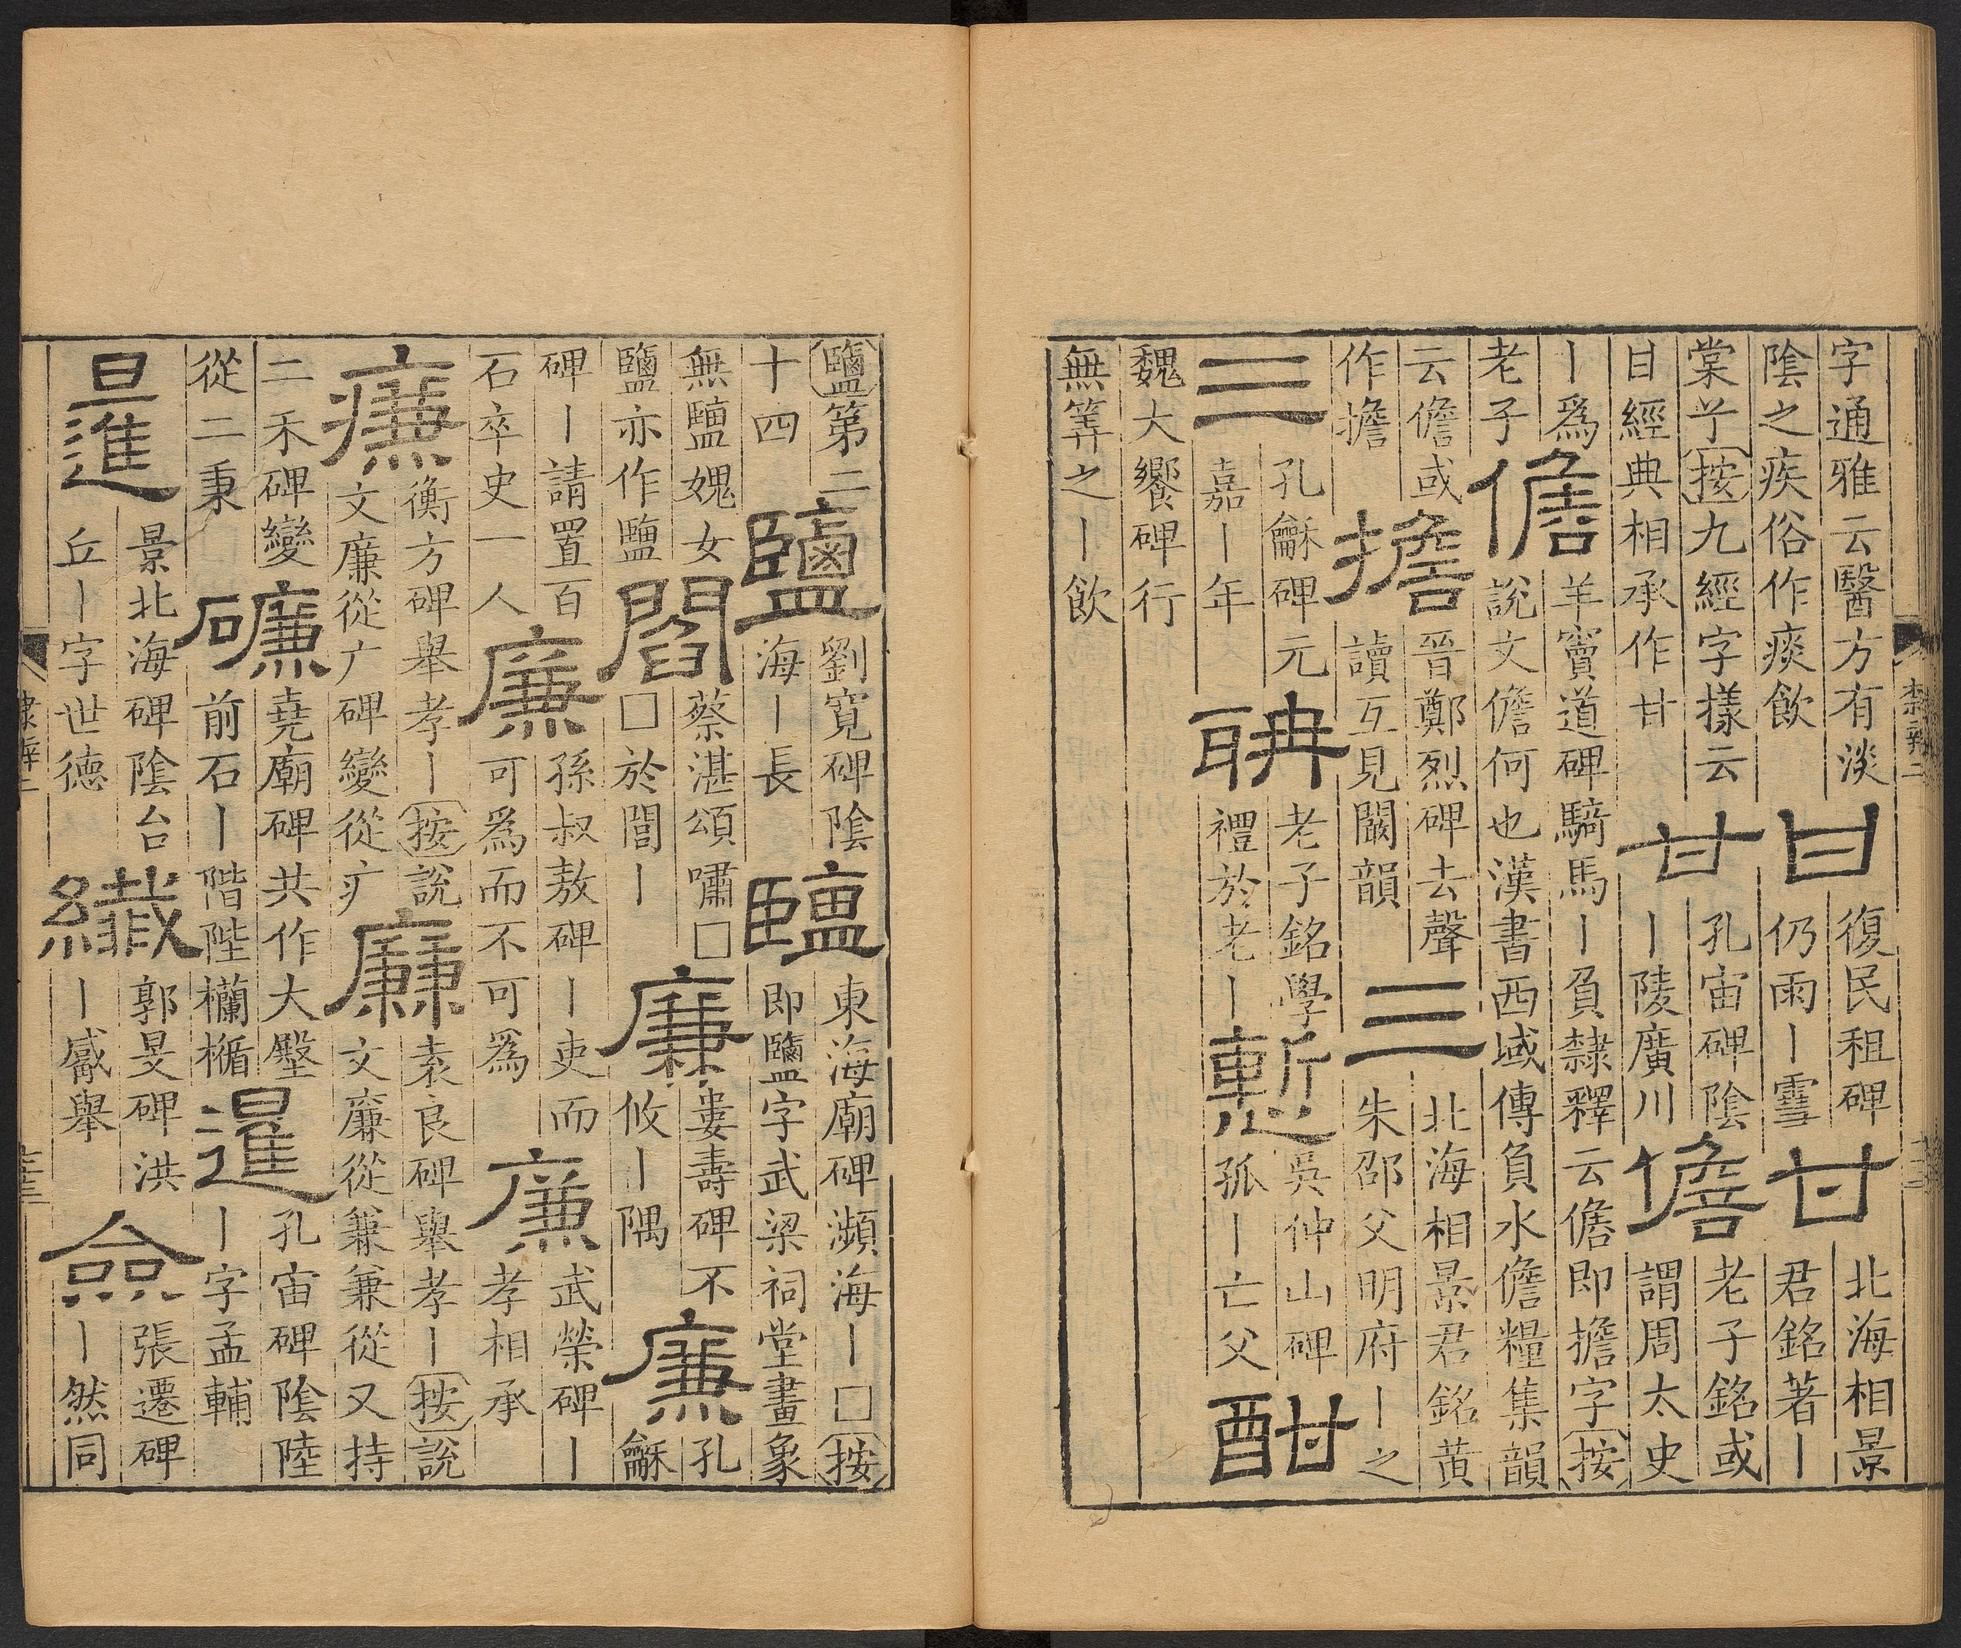 字通雅云醫方有淡
陰之疾俗作痰飲
甘
復民租碑
仍雨丨雪
甘
北海相景
君銘著丨
棠𠀤按九經字樣云
甘經典相承作甘
甘
孔宙碑陰
丨陵廣川
儋
老子銘或
謂周太史
丨爲
老子
儋
羊竇道碑騎馬丨負隸釋云儋即擔字按
說文儋何也漢書西域傳負水儋糧集韻
云儋或
作擔
擔
晉鄭烈碑去聲
讀互見闞韻
三
北海相景君銘黃
朱邵父明府丨之
三
孔龢碑元
嘉丨年
聃
老子銘學
禮於老丨
慙
吳仲山碑
孤丨亡父
酣
魏大饗碑行
無筭之丨飲
隸辨二
鹽第二
十四
鹽
劉寬碑陰
海丨長
䀋
東海廟碑瀕海丨□按
即鹽字武梁祠堂畫象
無䀋媿女
鹽亦作䀋
閻
蔡湛頌嘯□
□於閻丨
廉
婁壽碑不
攸丨隅
廉
孔
龢
碑丨請置百
石卒史一人
廉
孫叔敖碑丨吏而
可爲而不可爲
廉
武榮碑丨
孝相承
廉
衡方碑舉孝丨按說
文廉從广碑變從疒
廉
袁良碑舉孝丨按說
文廉從兼兼從又持
二禾碑變
從二秉
磏
堯廟碑共作大壂
前石丨階陛欄楯
暹
孔宙碑陰陸
丨字孟輔
暹
景北海碑陰台
丘丨字世德
纖
郭旻碑洪
丨舉
僉
張遷碑
丨然同
隸辨二